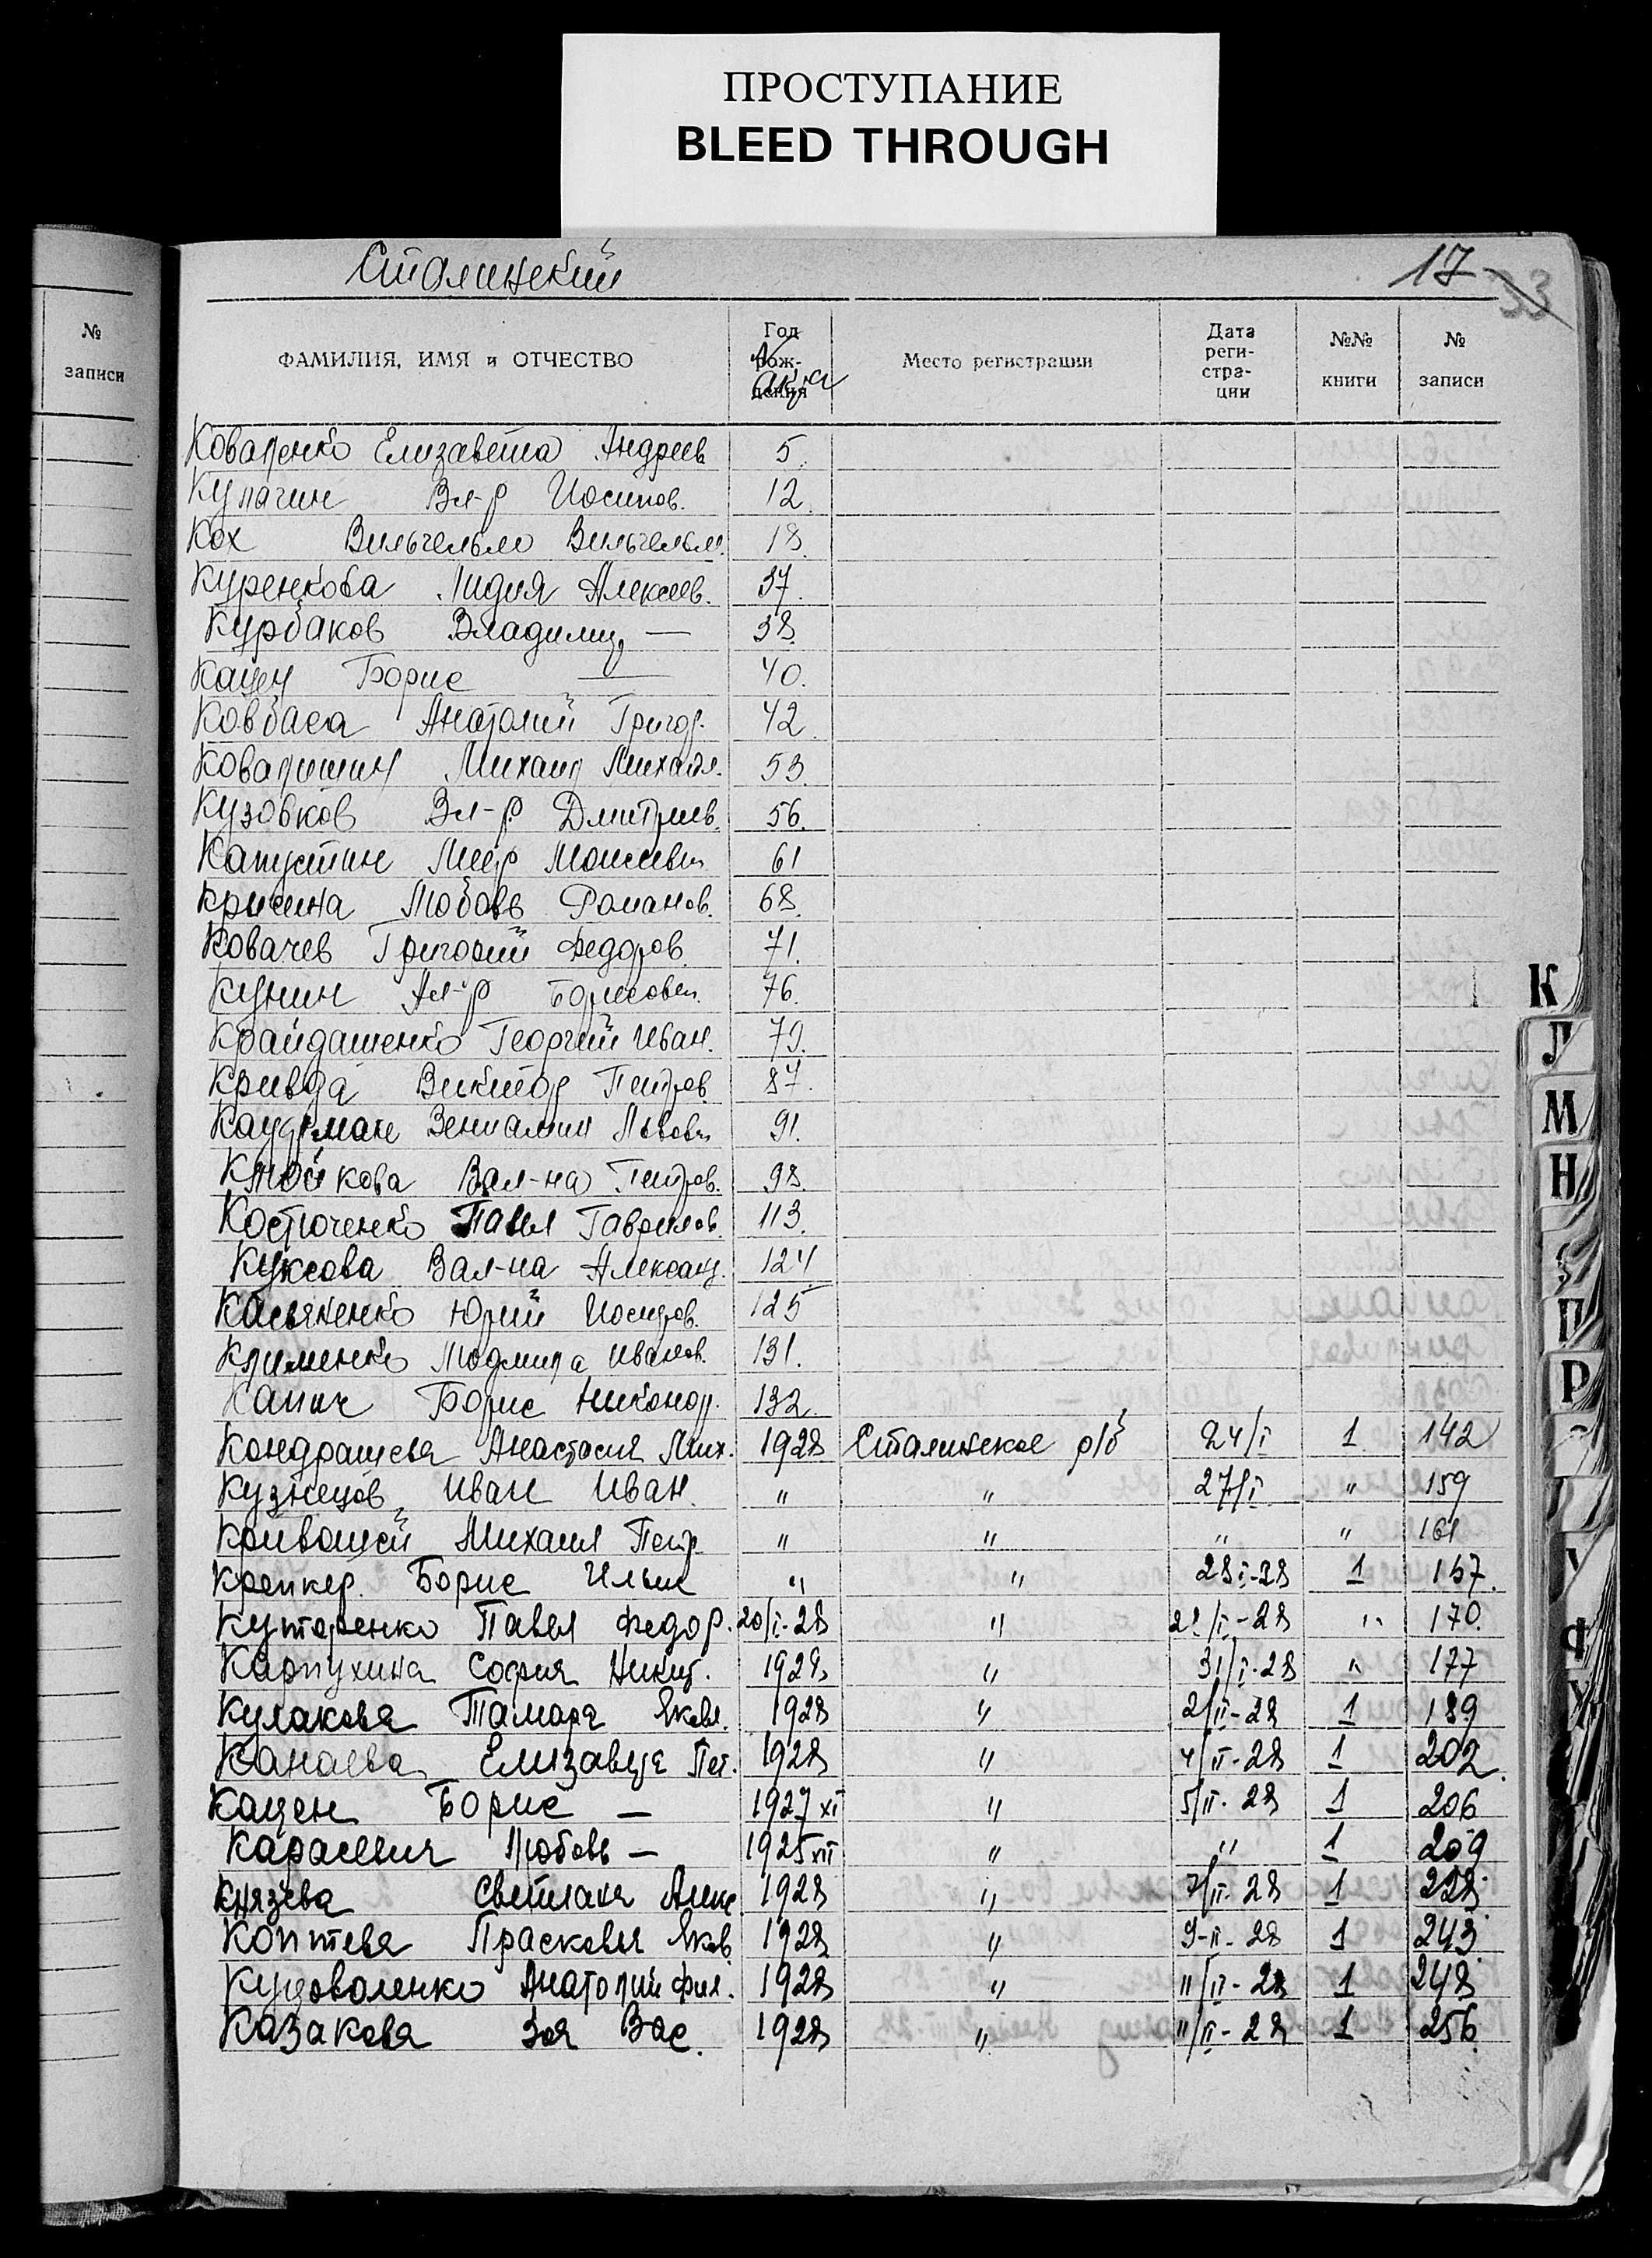 ПРОСТУПАНИЕ
BLEED THROUGH
Сталинский 17 33
№ записи
ФАМИЛИЯ, ИМЯ и ОТЧЕСТВО Год рождения № акта Место регистрации Дата регистрации №№ книги № записи
Коваленко Елизавета Андреев 5.
Кулагин Вл-р Иосипов. 12.
Кох Вильгельм Вильгельм. 18.
Куренкова Лидия Алексеев. 37.
Курбаков Владимир — 38.
Кацен Борис — 40.
Ковбаса Анатолий Григор. 42.
Ковалишин Михаил Михайл. 53.
Кузовков Вл-р Дмитриев. 56.
Капустин Меер Моисеевич 61
Любовь Романов. 68.
Ковачев Григорий Федоров. 71.
Кунин Ал-р Борисович. 76.
Крайдашенко Георгий Иван. 79.
Кривда Виктор Петров. 87.
Вениамин Львович 91.
Клюйкова Вал-на Петров. 98.
Костюченко Павел Гаврилов. 113.
Куксова Вал-на Александ. 124
Касьяненко Юрий Иосифов. 125
Клименко Людмила Иванов. 131.
Борис Никонор. 132.
Кондрашева Анастасия Мих. 1928 Сталинское р/б 24/I 1 142
Кузнецов Иван Иван. " " 27/I " 159
Кривошей Михаил Петр. " " " " 161
Крепкер Борис Ильич " " 28I-28 1 167.
Кутаренко Павел Федор. 20/I-28 " /I-28 " 170.
Карпухина София Никит. 1928 " 31/I-28 " 177
Кулакова Тамара Яковл. 1928 " 2/II-28 1 189
Канаева Елизавета Пет. 1928 " 4/II-28 1 202.
Кацен Борис — 1927 XI " 5/II-28 1 206
Карасевич Любовь — 1925 XII " " 1 209
Князева Светлана Алекс 1928 " 7/II-28 1 228
Коптева Прасковья Яков 1928 " 9-II-28 1 243.
Анатолий Фил. 1928 " 11/II-28 1 248
Казакова Зоя Вас. 1928 " 11/II-28 1 256.
К
Л
М
Н
П
Р